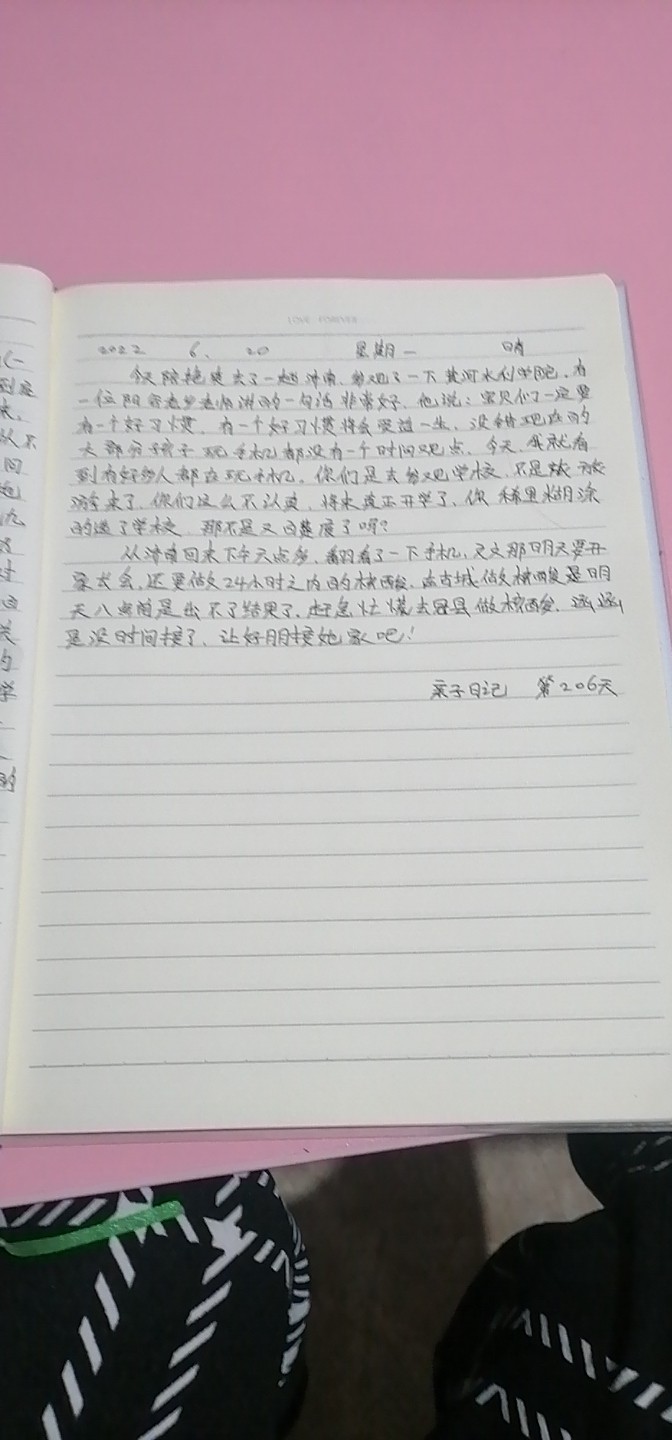 LOVE FOREVER
2022 6. 20 星期一 晴
今天陪艳 去了一趟济南,参观了一下黄河水利学院,有
一位阳 老师讲的一句话非常好,他说:宝贝们一定要
有一个好习惯,有一个好习惯将会受益一生,没错现在的
大部分孩子玩手机都没有一个时间观点,今天,我就看
到有好多人都在玩手机,你们是去参观学校,不是
来了,你们这么不认真,将来真正开学了,你稀里糊涂
的进了学校,那不是又白 了吗?
从济南回来下午六点多,翻看了一下手机,文文那明天要开
家长会,还要做24小时之内的核酸,在古城做核酸是明
天八点前是出不了结果了,赶急忙慌去冠县做核酸,涵涵
是没时间接了,让好朋接她家吧!
亲子日记 第206天
人不
间
对
的
学
的